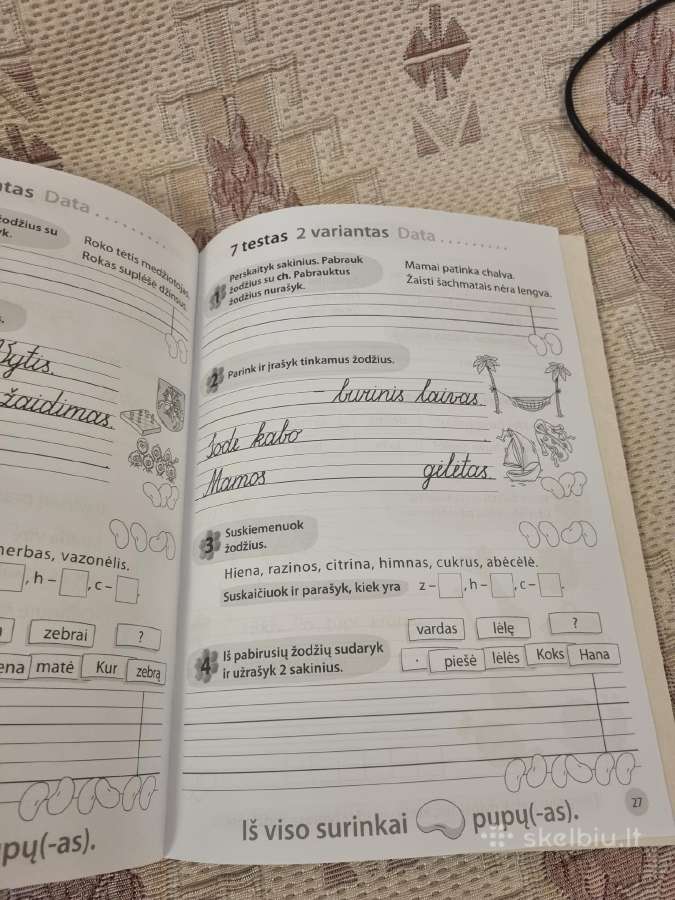 tas Data
žodžius su
yk.
Roko tėtis medžiotojas.
Rokas suplėšė džinsus.
s.
Vytis.
žaidimas.
herbas, vazonėlis.
, h – , c – .
zebrai ?
ena matė Kur zebrą
pupų(-as).
7 testas 2 variantas Data
1 Perskaityk sakinius. Pabrauk
žodžius su ch. Pabrauktus
žodžius nurašyk.
Mamai patinka chalva.
Žaisti šachmatais nėra lengva.
2 Parink ir įrašyk tinkamus žodžius.
– burinis laivas
Sode kabo .
Mamos gėlėtas.
3 Suskiemenuok
žodžius.
Hiena, razinos, citrina, himnas, cukrus, abėcėlė.
Suskaičiuok ir parašyk, kiek yra z – , h – , c – .
vardas lėlę ?
4 Iš pabirusių žodžių sudaryk
ir užrašyk 2 sakinius.
. piešė lėlės Koks Hana
27
Iš viso surinkai pupų(-as).
skelbiu.lt